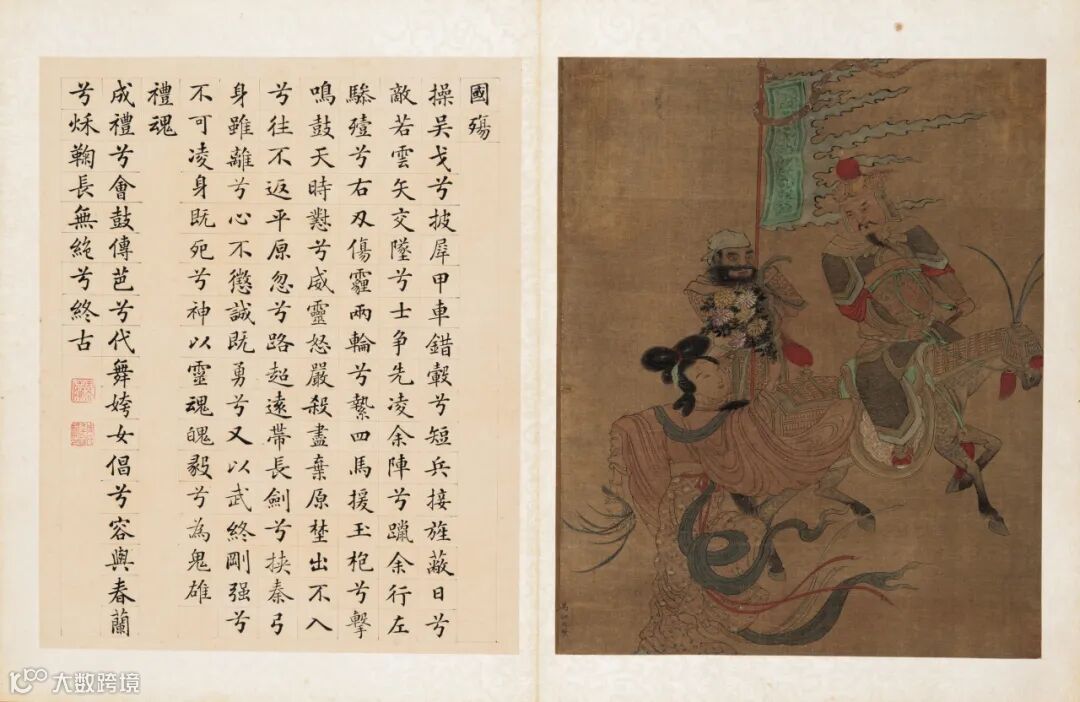 國殤
操吴戈兮披犀甲車錯轂兮短兵接旌蔽日兮
敵若雲矢交墜兮士争先凌余陣兮躐余行左
驂殪兮右刄傷霾兩輪兮縶四馬援玉枹兮擊
鳴鼓天時懟兮威靈怒嚴殺盡棄原埜出不入
兮往不返平原忽兮路超遠帶長劍兮挾秦弓
身雖離兮心不懲誠既勇兮又以武終剛强兮
不可凌身既死兮神以靈魂魄毅兮為鬼雄
禮魂
成禮兮會鼓傳芭兮代舞姱女倡兮容與春蘭
兮秌鞠長無絶兮終古
大数跨境